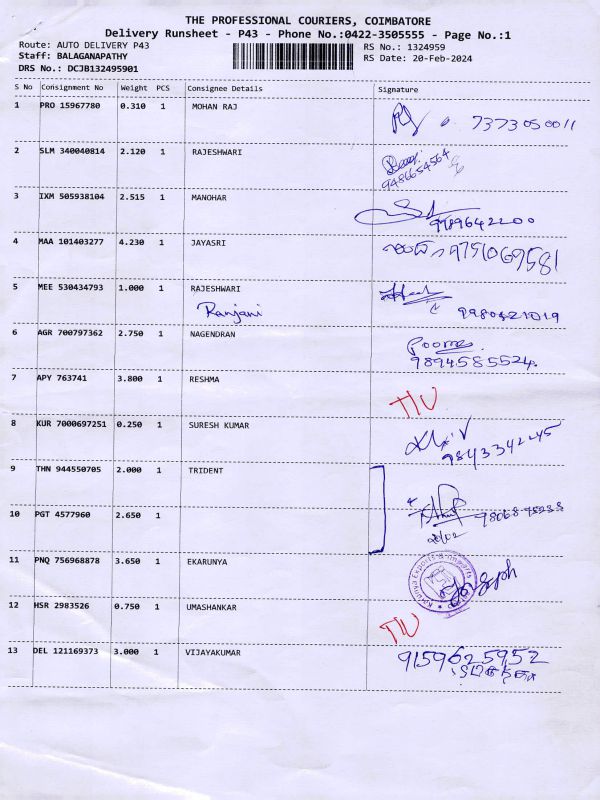 THE PROFESSIONAL COURIERS, COIMBATORE
Delivery Runsheet - P43 - Phone No.:0422-3505555 - Page No.:1
Route: AUTO DELIVERY P43
RS No.: 1324959
Staff: BALAGANAPATHY
RS Date: 20-Feb-2024
DRS No.: DCJB132495901
S No Consignment No Weight PCS Consignee Details Signature
1 PRO 15967780 0.310 1 MOHAN RAJ
7373050011
2 SLM 340040814 2.120 1 RAJESHWARI
9486654564
3 IXM 505938104 2.515 1 MANOHAR
9989642200
4 MAA 101403277 4.230 1 JAYASRI
9751069581
5 MEE 530434793 1.000 1 RAJESHWARI
Ranjani
9980421019
6 AGR 700797362 2.750 1 NAGENDRAN
9894585524
7 APY 763741 3.800 1 RESHMA
8 KUR 7000697251 0.250 1 SURESH KUMAR
9843342245
9 THN 944550705 2.000 1 TRIDENT
20/02
10 PGT 4577960 2.650 1
11 PNQ 756968878 3.650 1 EKARUNYA
12 HSR 2983526 0.750 1 UMASHANKAR
13 DEL 121169373 3.000 1 VIJAYAKUMAR
9159625952